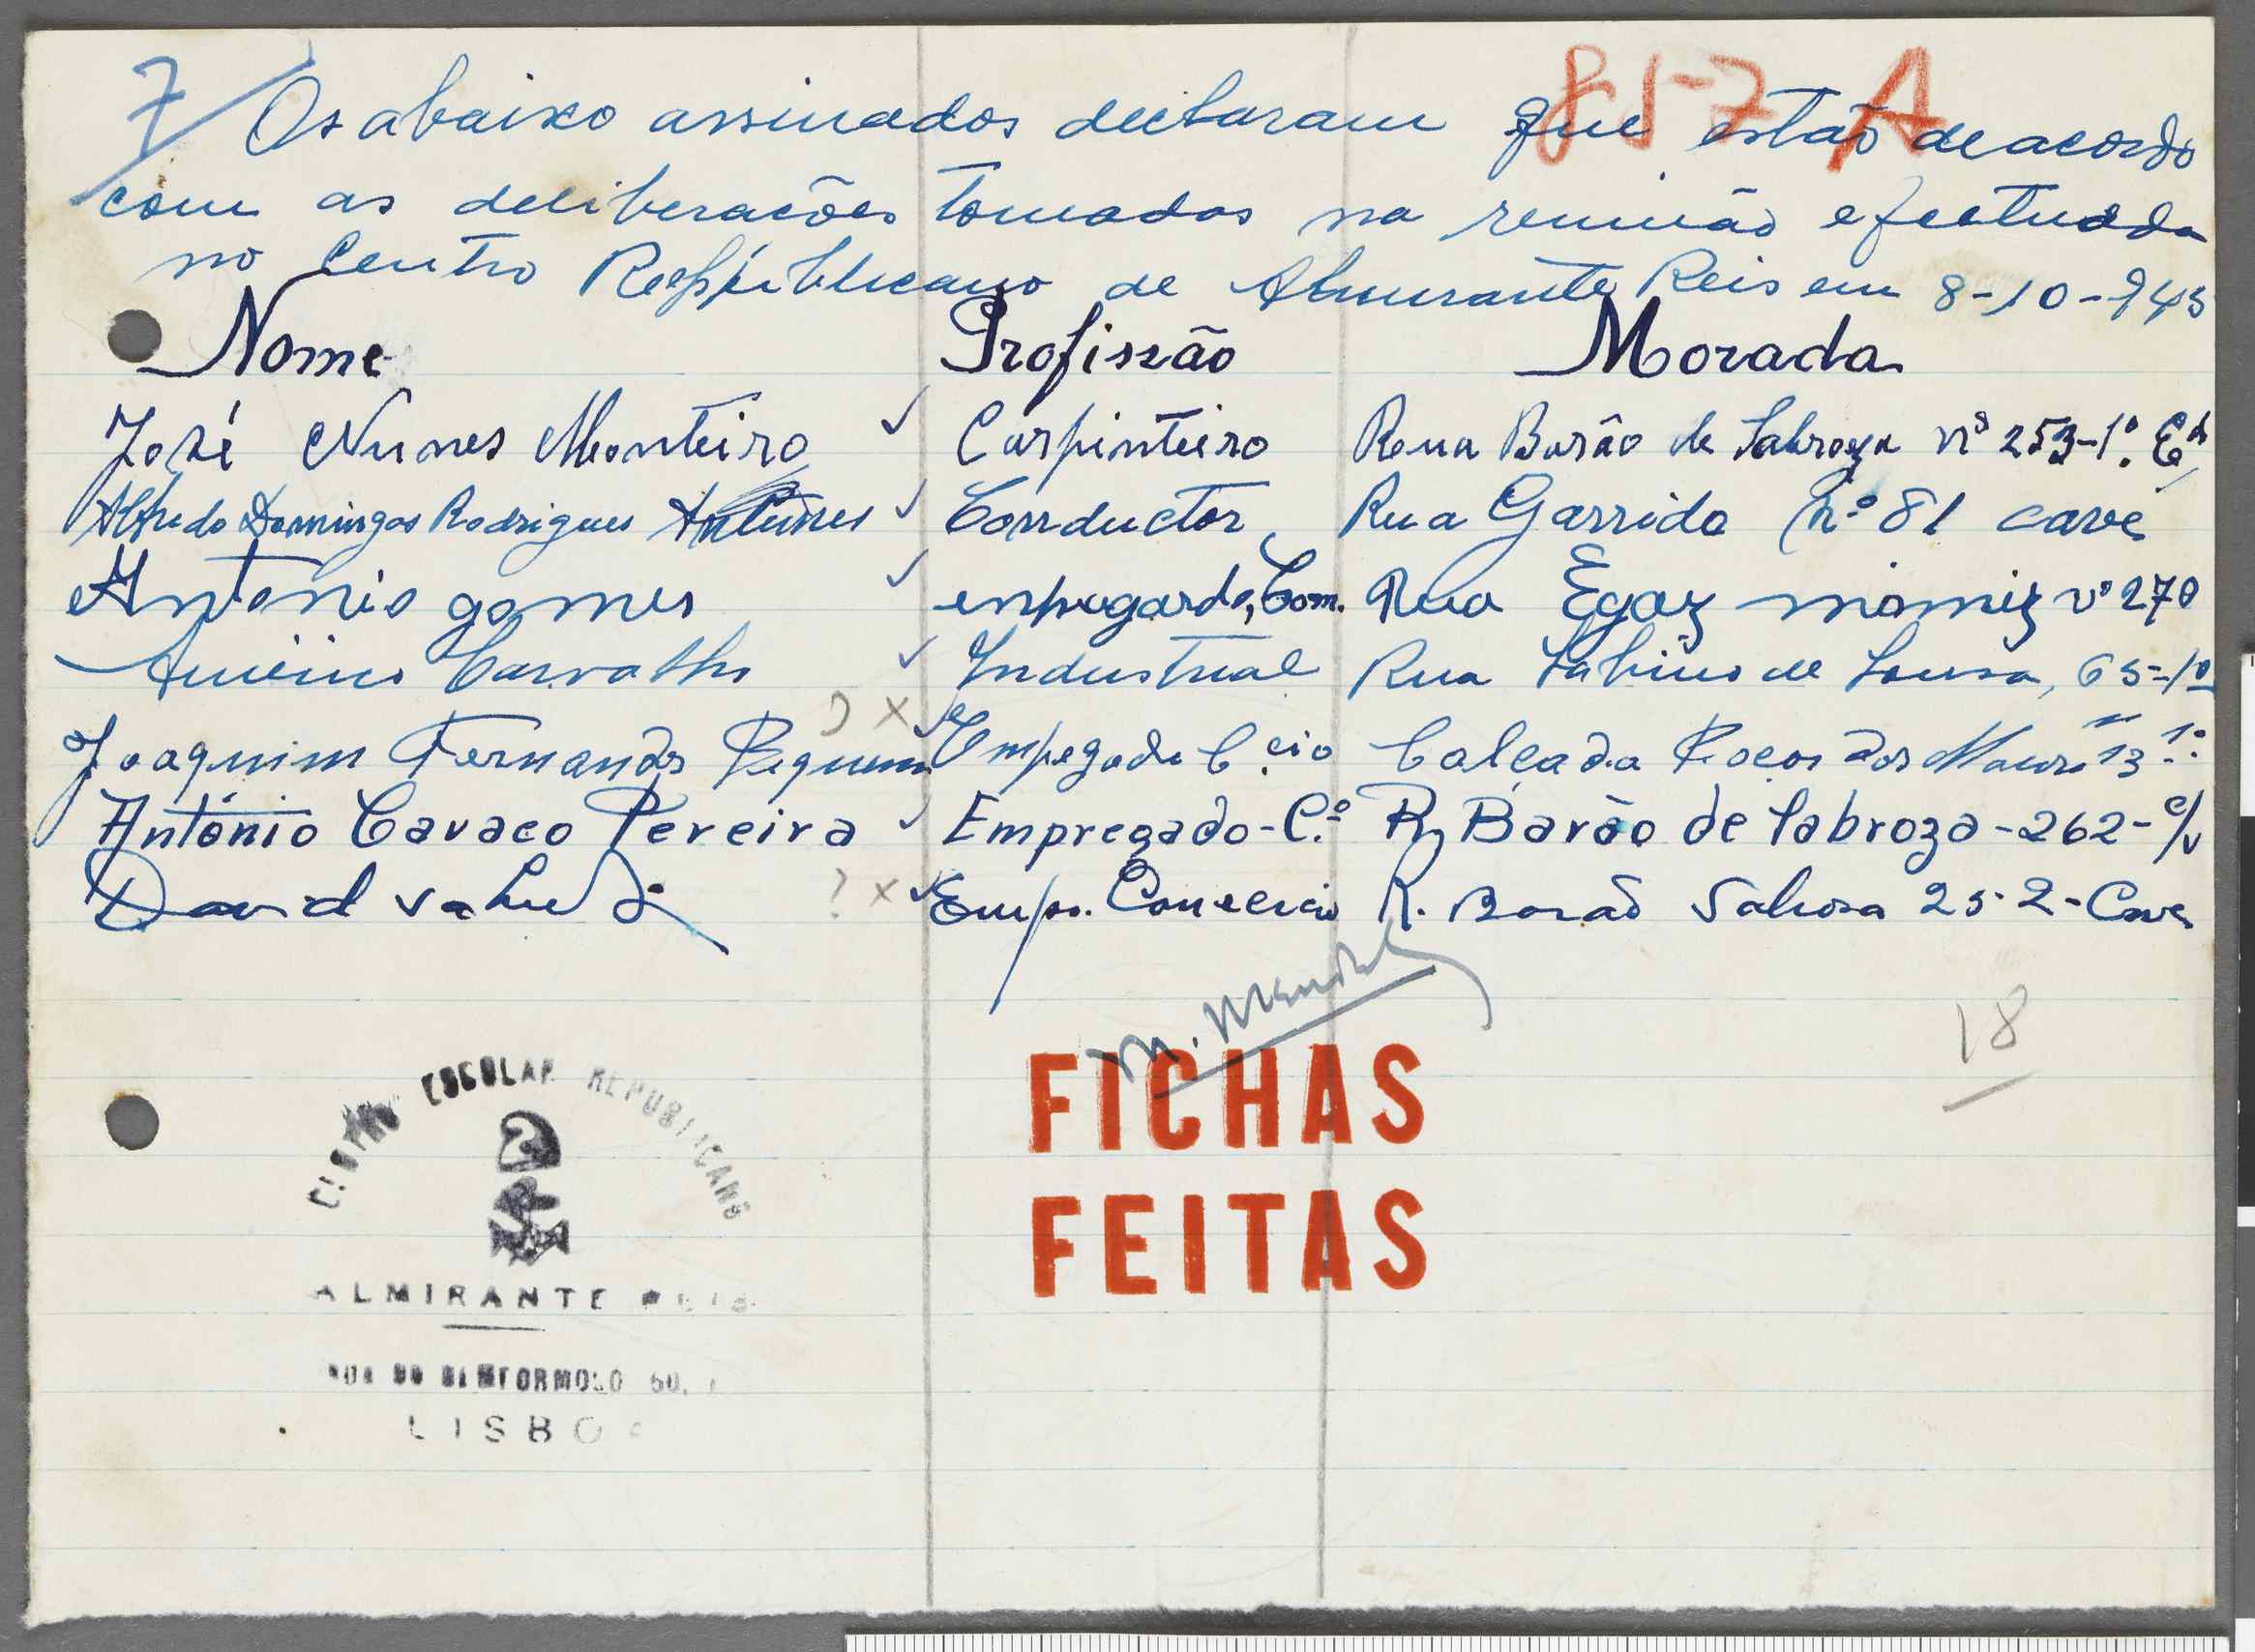 7
857 A
Os abaixo assinados declaram que estão de acordo
com as deliberacões tomadas na reunião efectuada
no Centro Republicano de Almirante Reis em 8-10-945
Nome Profissão Morada
José Nunes Monteiro Carpinteiro Rua Barão de Sabroza nº 253-1º. Edº
Alfredo Domingos Rodrigues Antunes Conductor Rua Garrido nº 81 cave
Antonio gomes Com. Rua Egaz moniz nº 270
Carvalho Industrial Rua Sabino de Sousa, 65-1º
Joaquim Fernandes Empegado Ccio Calçada Pocos dos Mouros 13 1º
António Cavaco Pereira Empregado-C.º R. Barão de Sabroza-262-c/v
? x
David Emp. Comercio R. Barão Sabrosa 252-Cave
M.
18
CENTRO ESCOLAR REPUBLICANO
ALMIRANTE REIS
RUA DO BEMFORMOSO 50,
LISBOA
FICHAS
FEITAS